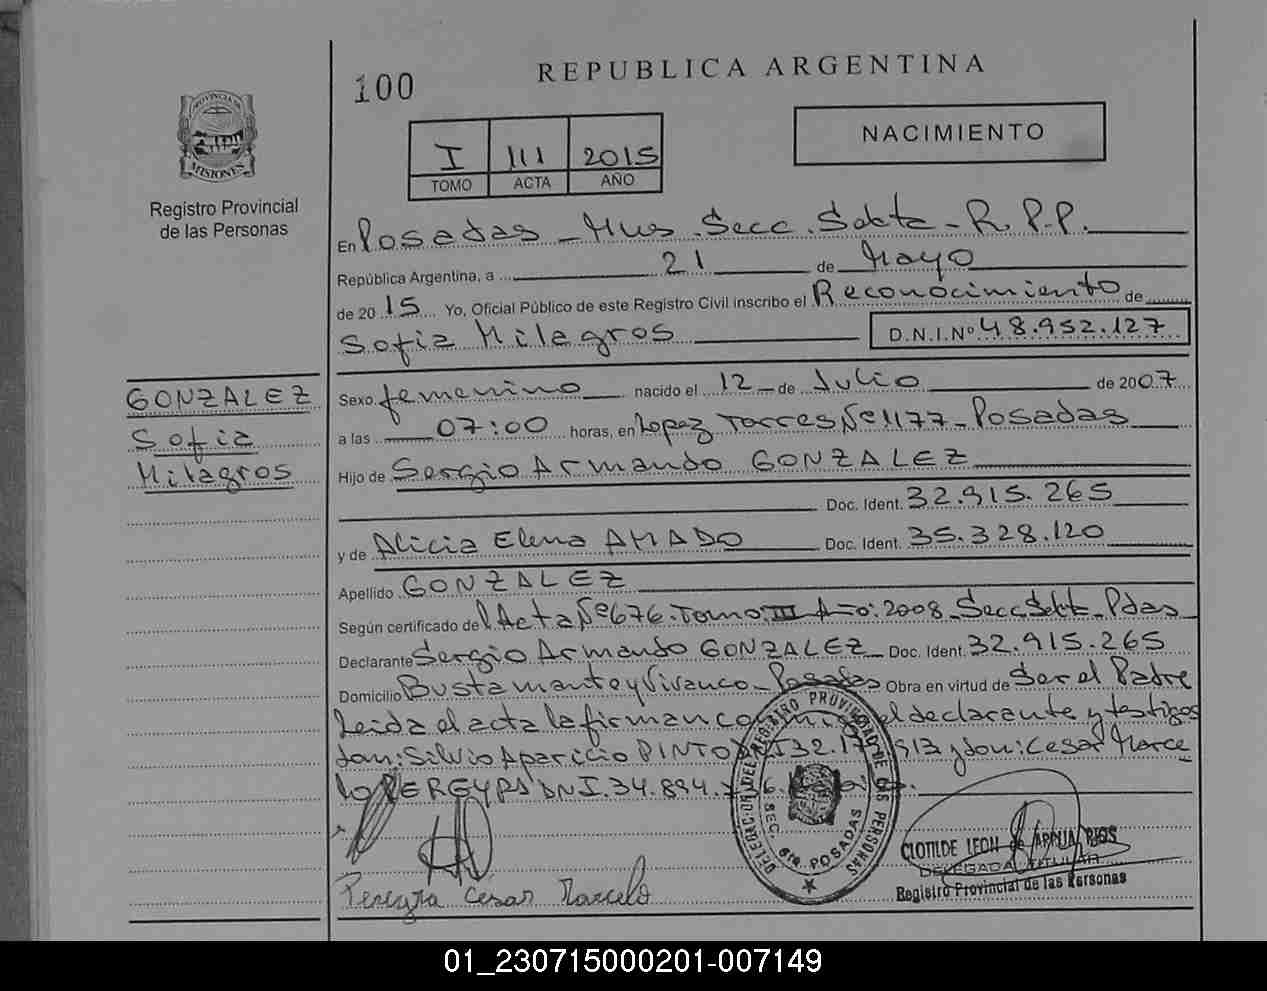 100
REPUBLICA ARGENTINA
PROVINCIA DE
MISIONES
Registro Provincial
de las Personas
I III 2015
TOMO ACTA AÑO
NACIMIENTO
En Posadas - Mnes. Secc. Sexta - R. P. P.
República Argentina, a 21 de Mayo
de 2015 Yo, Oficial Público de este Registro Civil inscribo el Reconocimiento de
Sofia Milagros D.N.I.Nº 48.952.127
GONZALEZ
Sofia
Milagros
Sexo femenino nacido el 12 de Julio de 2007
a las 07:00 horas, en Lopez Torres Nº 1177 - Posadas
Hijo de Sergio Armando GONZALEZ
Doc. Ident. 32.915.265
y de Alicia Elena AMADO Doc. Ident. 35.328.120
Apellido GONZALEZ
Según certificado del Acta Nº 676. Tomo III Año: 2008 Secc. Sexta - Pdas
Declarante Sergio Armando GONZALEZ Doc. Ident. 32.915.265
Domicilio Bustamante y Vivanco - Posadas Obra en virtud de Ser el Padre
Leida el acta la firman conmigo el declarante y testigos
don: Silvio Aparicio PINTO DNI 32.17 913 y don: Cesar Marce
lo PEREYRA DNI. 34.894.
DELEGACION DEL REGISTRO PROVINCIAL DE LAS PERSONAS
SEC. 6ta POSADAS
Pereyra Cesar Marcelo
CLOTILDE LEON de ARRUA RIOS
DELEGADA TITULAR
Registro Provincial de las Personas
01_230715000201-007149